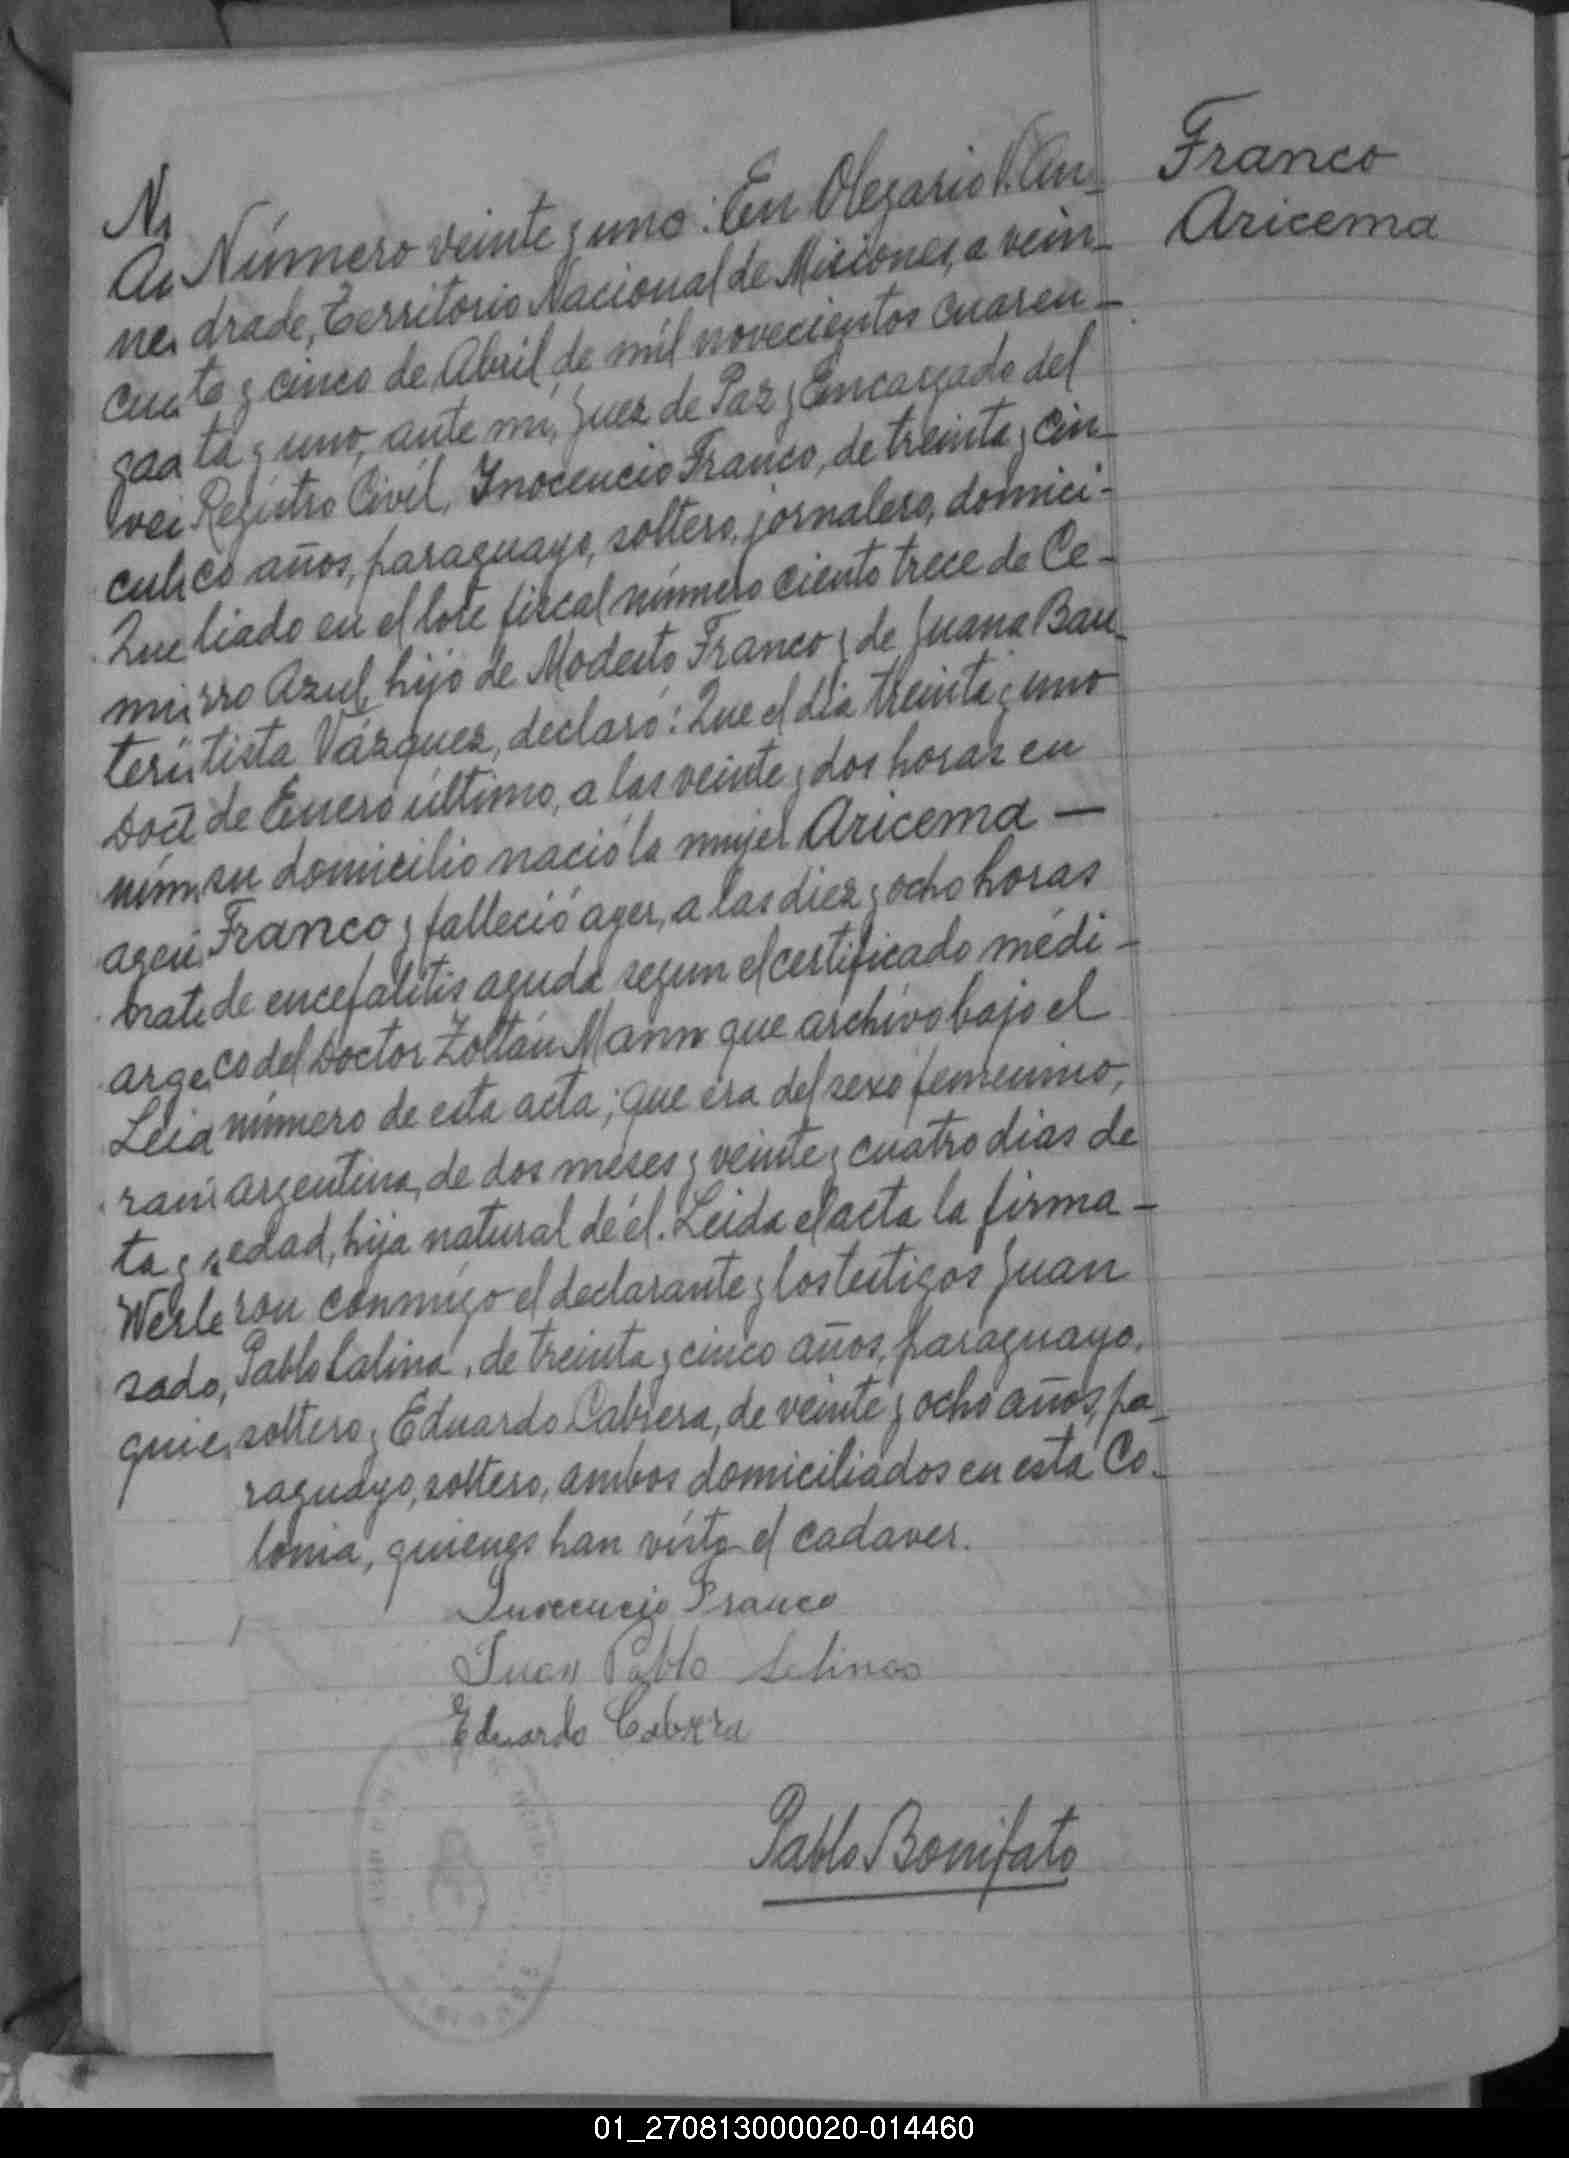 Franco
Aricema
Número veinte y uno: En Olegario V. An-
drade, Territorio Nacional de Misiones, a vein-
te y cinco de Abril de mil novecientos cuaren-
ta y uno, ante mí, Juez de Paz y Encargado del
Registro Civil, Inocencio Franco, de treinta y cin-
co años, paraguayo, soltero, jornalero, domici-
liado en el lote fiscal número ciento trece de Ce-
rro Azul, hijo de Modesto Franco y de Juana Bau-
tista Vázquez, declaró: Que el día treinta y uno
de Enero último, a las veinte y dos horas en
su domicilio nació la mujer Aricema —
Franco y falleció ayer, a las diez y ocho horas
de encefalitis aguda segun el certificado médi-
co del Doctor Zoltán Mann que archivo bajo el
número de esta acta; que era del sexo femenino,
argentina, de dos meses y veinte y cuatro dias de
edad, hija natural de él. Leida el acta la firma-
ron conmigo el declarante y los testigos Juan
Pablo Salina, de treinta y cinco años, paraguayo,
soltero y Eduardo Cabrera, de veinte y ocho años, pa-
raguayo, soltero, ambos domiciliados en esta Co-
lonia, quienes han visto el cadaver.
Inocencio Franco
Juan Pablo Salinas
Eduardo Cabrera
Pablo Bonifato
01_270813000020-014460